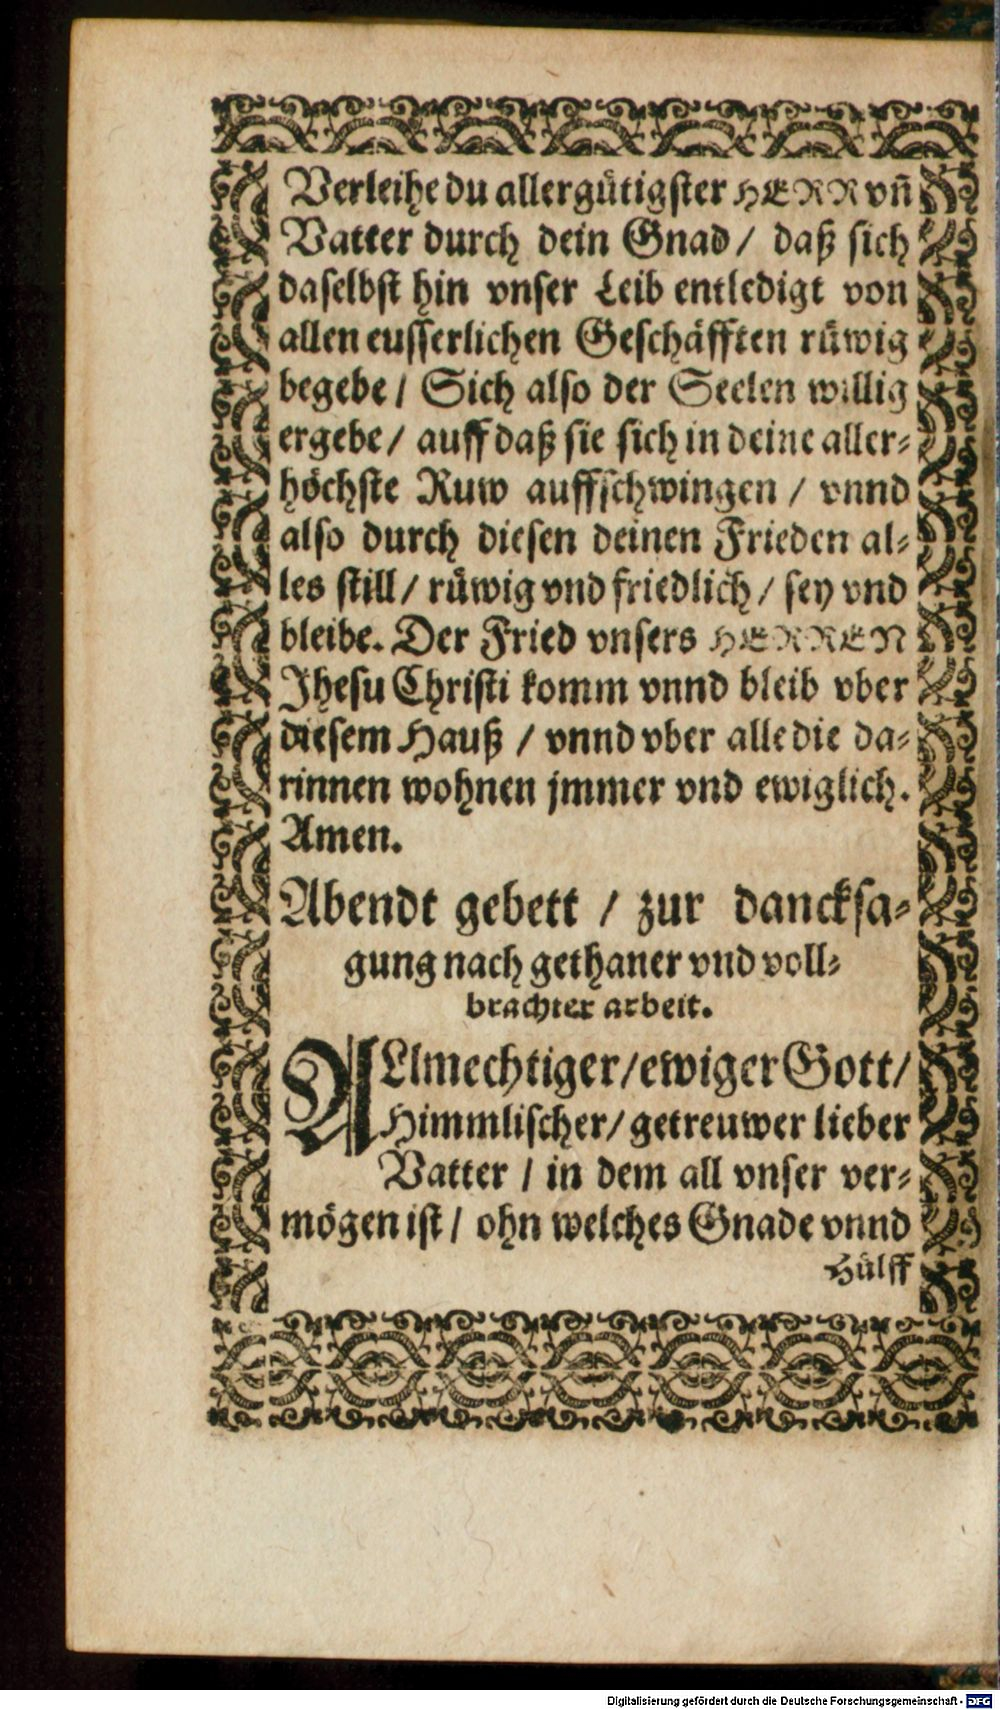 Verleihe du allergütigster HERR vñ
Vatter durch dein Gnad / daß sich
daselbst hin vnser Leib entledigt von
allen eusserlichen Geschäfften rüwig
begebe / Sich also der Seelen willig
ergebe / auff daß sie sich in deine aller⸗
höchste Ruw auffschwingen / vnnd
also durch diesen deinen Frieden al⸗
les still / rüwig vnd friedlich / sey vnd
bleibe. Der Fried vnsers HERREN
Jhesu Christi komm vnnd bleib vber
diesem Hauß / vnnd vber alle die da⸗
rinnen wohnen jmmer vnd ewiglich.
Amen.
Abendt gebett / zur dancksa⸗
gung nach gethaner vnd voll⸗
brachter arbeit.
ALlmechtiger / ewiger Gott /
Himmlischer / getreuwer lieber
Vatter / in dem all vnser ver⸗
mögen ist / ohn welches Gnade vnnd
Hülff
Digitalisierung gefördert durch die Deutsche Forschungsgemeinschaft - DFG